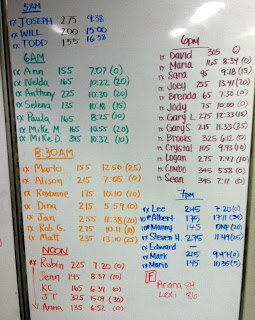 5AM
rx JOSEPH 275 9:38
rx WILL 200 15:00
rx TODD 155 16:58
6AM
rx Ann 155 7:07 (0)
rx Nelda 165 10:22 (20)
rx Anthony 225 10:30 (20)
rx Selena 135 10:18 (15)
rx Paula 165 8:25 (0)
rx Mike M. 165 10:55 (20)
rx Mike D. 325 10:32 (0)
8:30AM
rx Marlo 155 12:50 (25)
rx Alison 215 7:05 (0)
rx Roxanne 175 10:10 (10)
rx Dina 215 5:59 (0)
rx Jan 255 11:38 (20)
rx Rob G. 275 10:11 (0)
rx Matt 235 13:10 (25)
NOON
rx Robin 225 7:20 (0)
Jenn 145 8:37 (10)
KC 165 6:34 (0)
JT 325 15:09 (30)
Anna 135 6:52 (0)
6pm
rx David 365 (0)
rx Maria 165 8:34 (0)
rx Sara 95 9:28 (15)
rx Joey 255 13:47 (20)
rx Brenda 65 7:30 (0)
rx Jody 75 10:00 (0)
rx Gary L. 225 12:33 (25)
rx Gary S. 215 11:33 (25)
rx Brooks 325 6:12 (0)
rx Crystal 105 9:43 (10)
rx Logan 275 7:47 (20)
rx Combo 345 5:58 (0)
rx Sean 345 7:11 (0)
7pm
rx Lee 245 7:20 (0)
rx Albert 175 17:11 (30)
rx Manny 145 (20)
rx Steven H. 275 11:49 (25)
rx Edward —
rx Mark 215 9:47 (0)
rx Mario 145 10:36 (5)
F
Ariana
Lexi